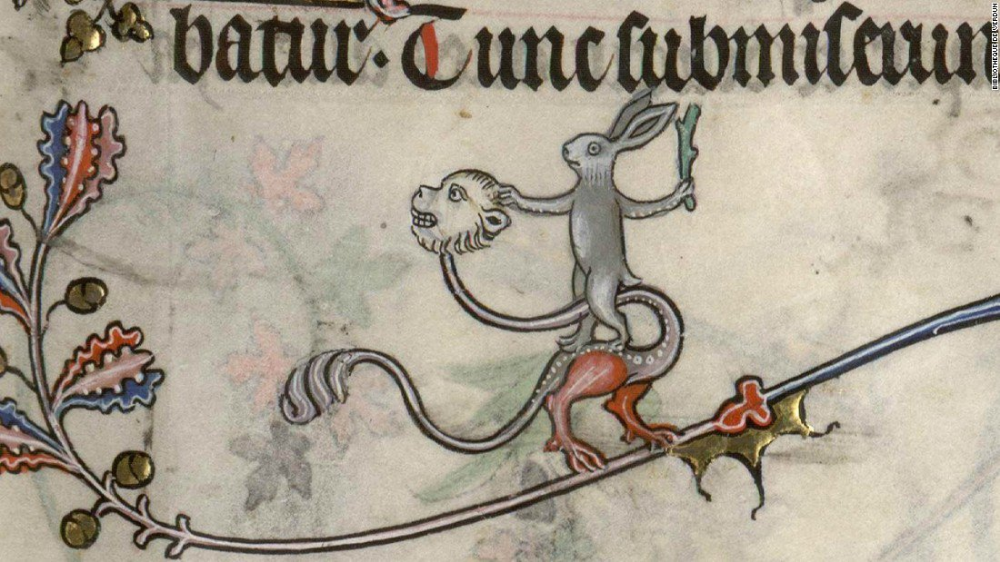 batur. Tunc submiserun
BIBLIOTHEQUE DE VERDUN